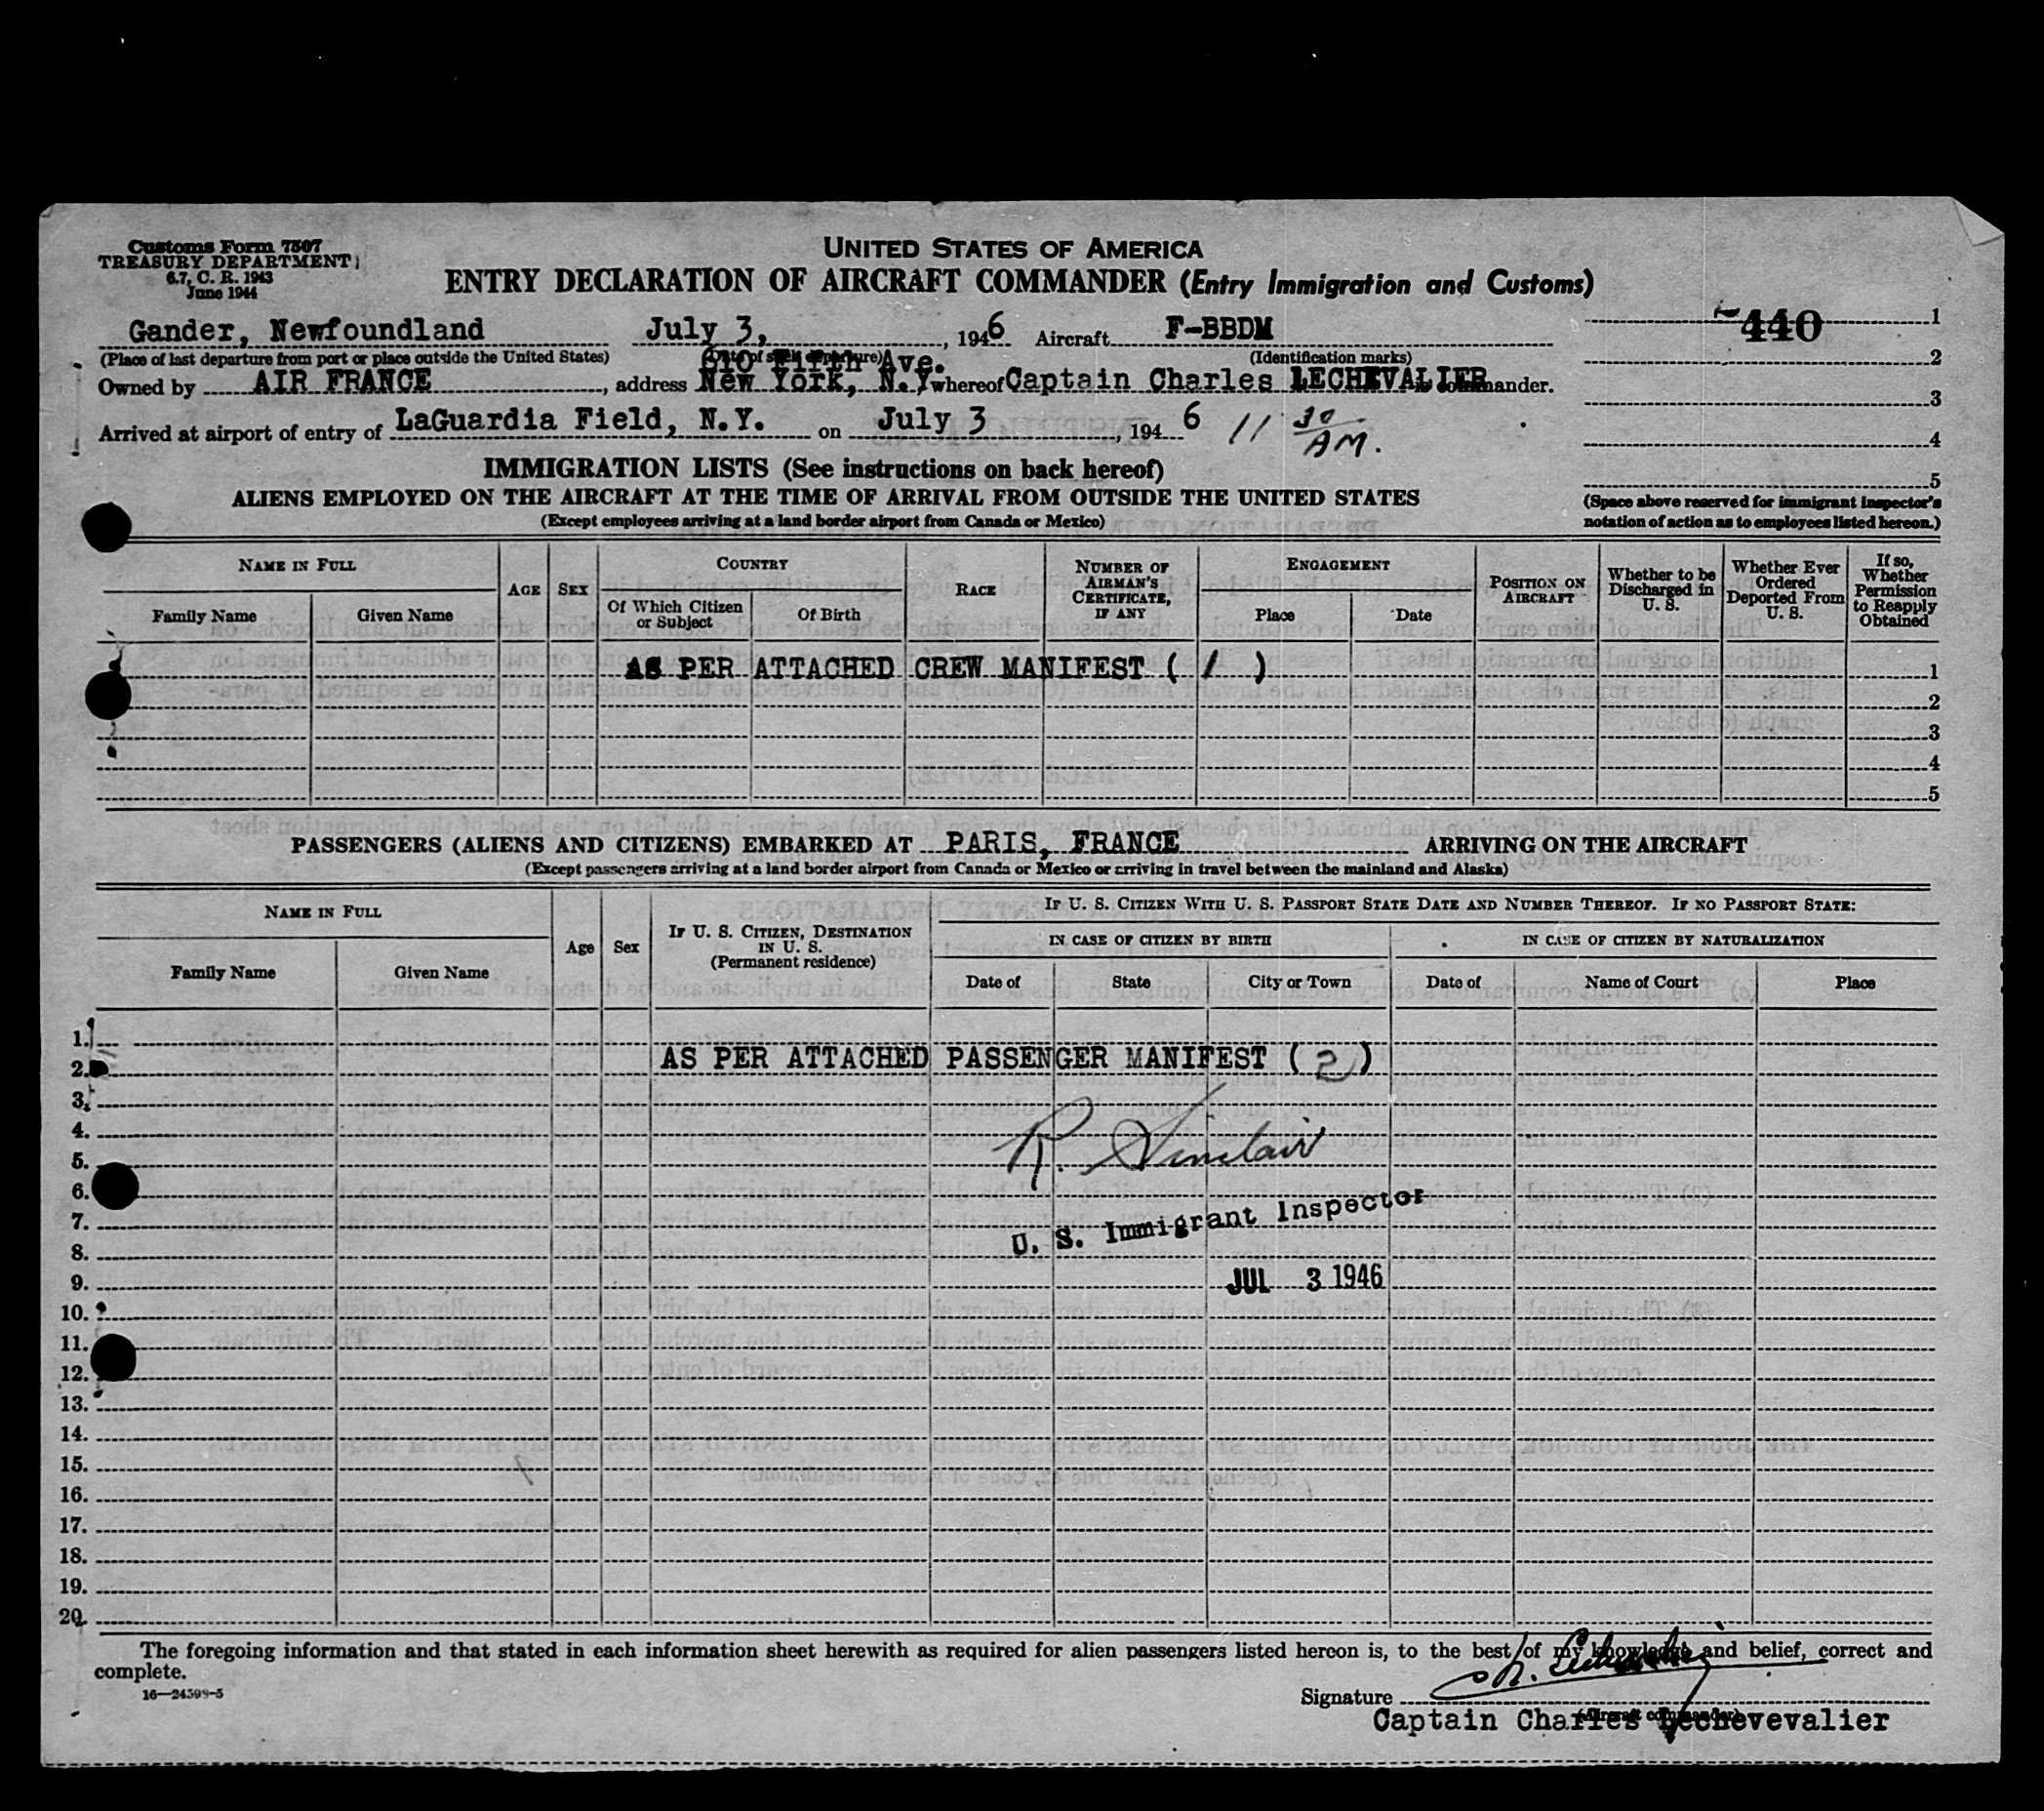 Customs Form 7507
TREASURY DEPARTMENT
6.7, C. R. 1943
June 1944
UNITED STATES OF AMERICA
ENTRY DECLARATION OF AIRCRAFT COMMANDER (Entry Immigration and Customs)
Gander, Newfoundland July 3, , 1946 Aircraft F-BBDM 440 1
(Place of last departure from port or place outside the United States) (Date of such departure) (Identification marks) 2
610 Fifth Ave.
Owned by AIR FRANCE , address New York, N.Y whereof Captain Charles LECHEVALIER is commander.
3
Arrived at airport of entry of LaGuardia Field, N.Y. on July 3 , 194 6 11 30 AM.
4
5
IMMIGRATION LISTS (See instructions on back hereof)
ALIENS EMPLOYED ON THE AIRCRAFT AT THE TIME OF ARRIVAL FROM OUTSIDE THE UNITED STATES
(Except employees arriving at a land border airport from Canada or Mexico)
(Space above reserved for immigrant inspector's
notation of action as to employees listed hereon.)
NAME IN FULL
Family Name Given Name
AGE SEX
COUNTRY
Of Which Citizen or Subject Of Birth
RACE
NUMBER OF AIRMAN'S CERTIFICATE, IF ANY
ENGAGEMENT
Place Date
POSITION ON AIRCRAFT
Whether to be Discharged in U. S.
Whether Ever Ordered Deported From U. S.
If so, Whether Permission to Reapply Obtained
AS PER ATTACHED CREW MANIFEST ( 1 ) 1
2
3
4
5
PASSENGERS (ALIENS AND CITIZENS) EMBARKED AT PARIS, FRANCE ARRIVING ON THE AIRCRAFT
(Except passengers arriving at a land border airport from Canada or Mexico or arriving in travel between the mainland and Alaska)
NAME IN FULL
Family Name Given Name
Age Sex
IF U. S. CITIZEN, DESTINATION IN U. S.
(Permanent residence)
IF U. S. CITIZEN WITH U. S. PASSPORT STATE DATE AND NUMBER THEREOF. IF NO PASSPORT STATE:
IN CASE OF CITIZEN BY BIRTH IN CASE OF CITIZEN BY NATURALIZATION
Date of State City or Town Date of Name of Court Place
1.
AS PER ATTACHED PASSENGER MANIFEST ( 2 )
2.
3.
4.
R. Sinclair
5.
6.
7.
U. S. Immigrant Inspector
8.
9. JUL 3 1946
10.
11.
12.
13.
14.
15.
16.
17.
18.
19.
20.
The foregoing information and that stated in each information sheet herewith as required for alien passengers listed hereon is, to the best of my knowledge and belief, correct and
complete.
16—24598-5
Signature
(Aircraft commander)
Captain Charles Lechevevalier